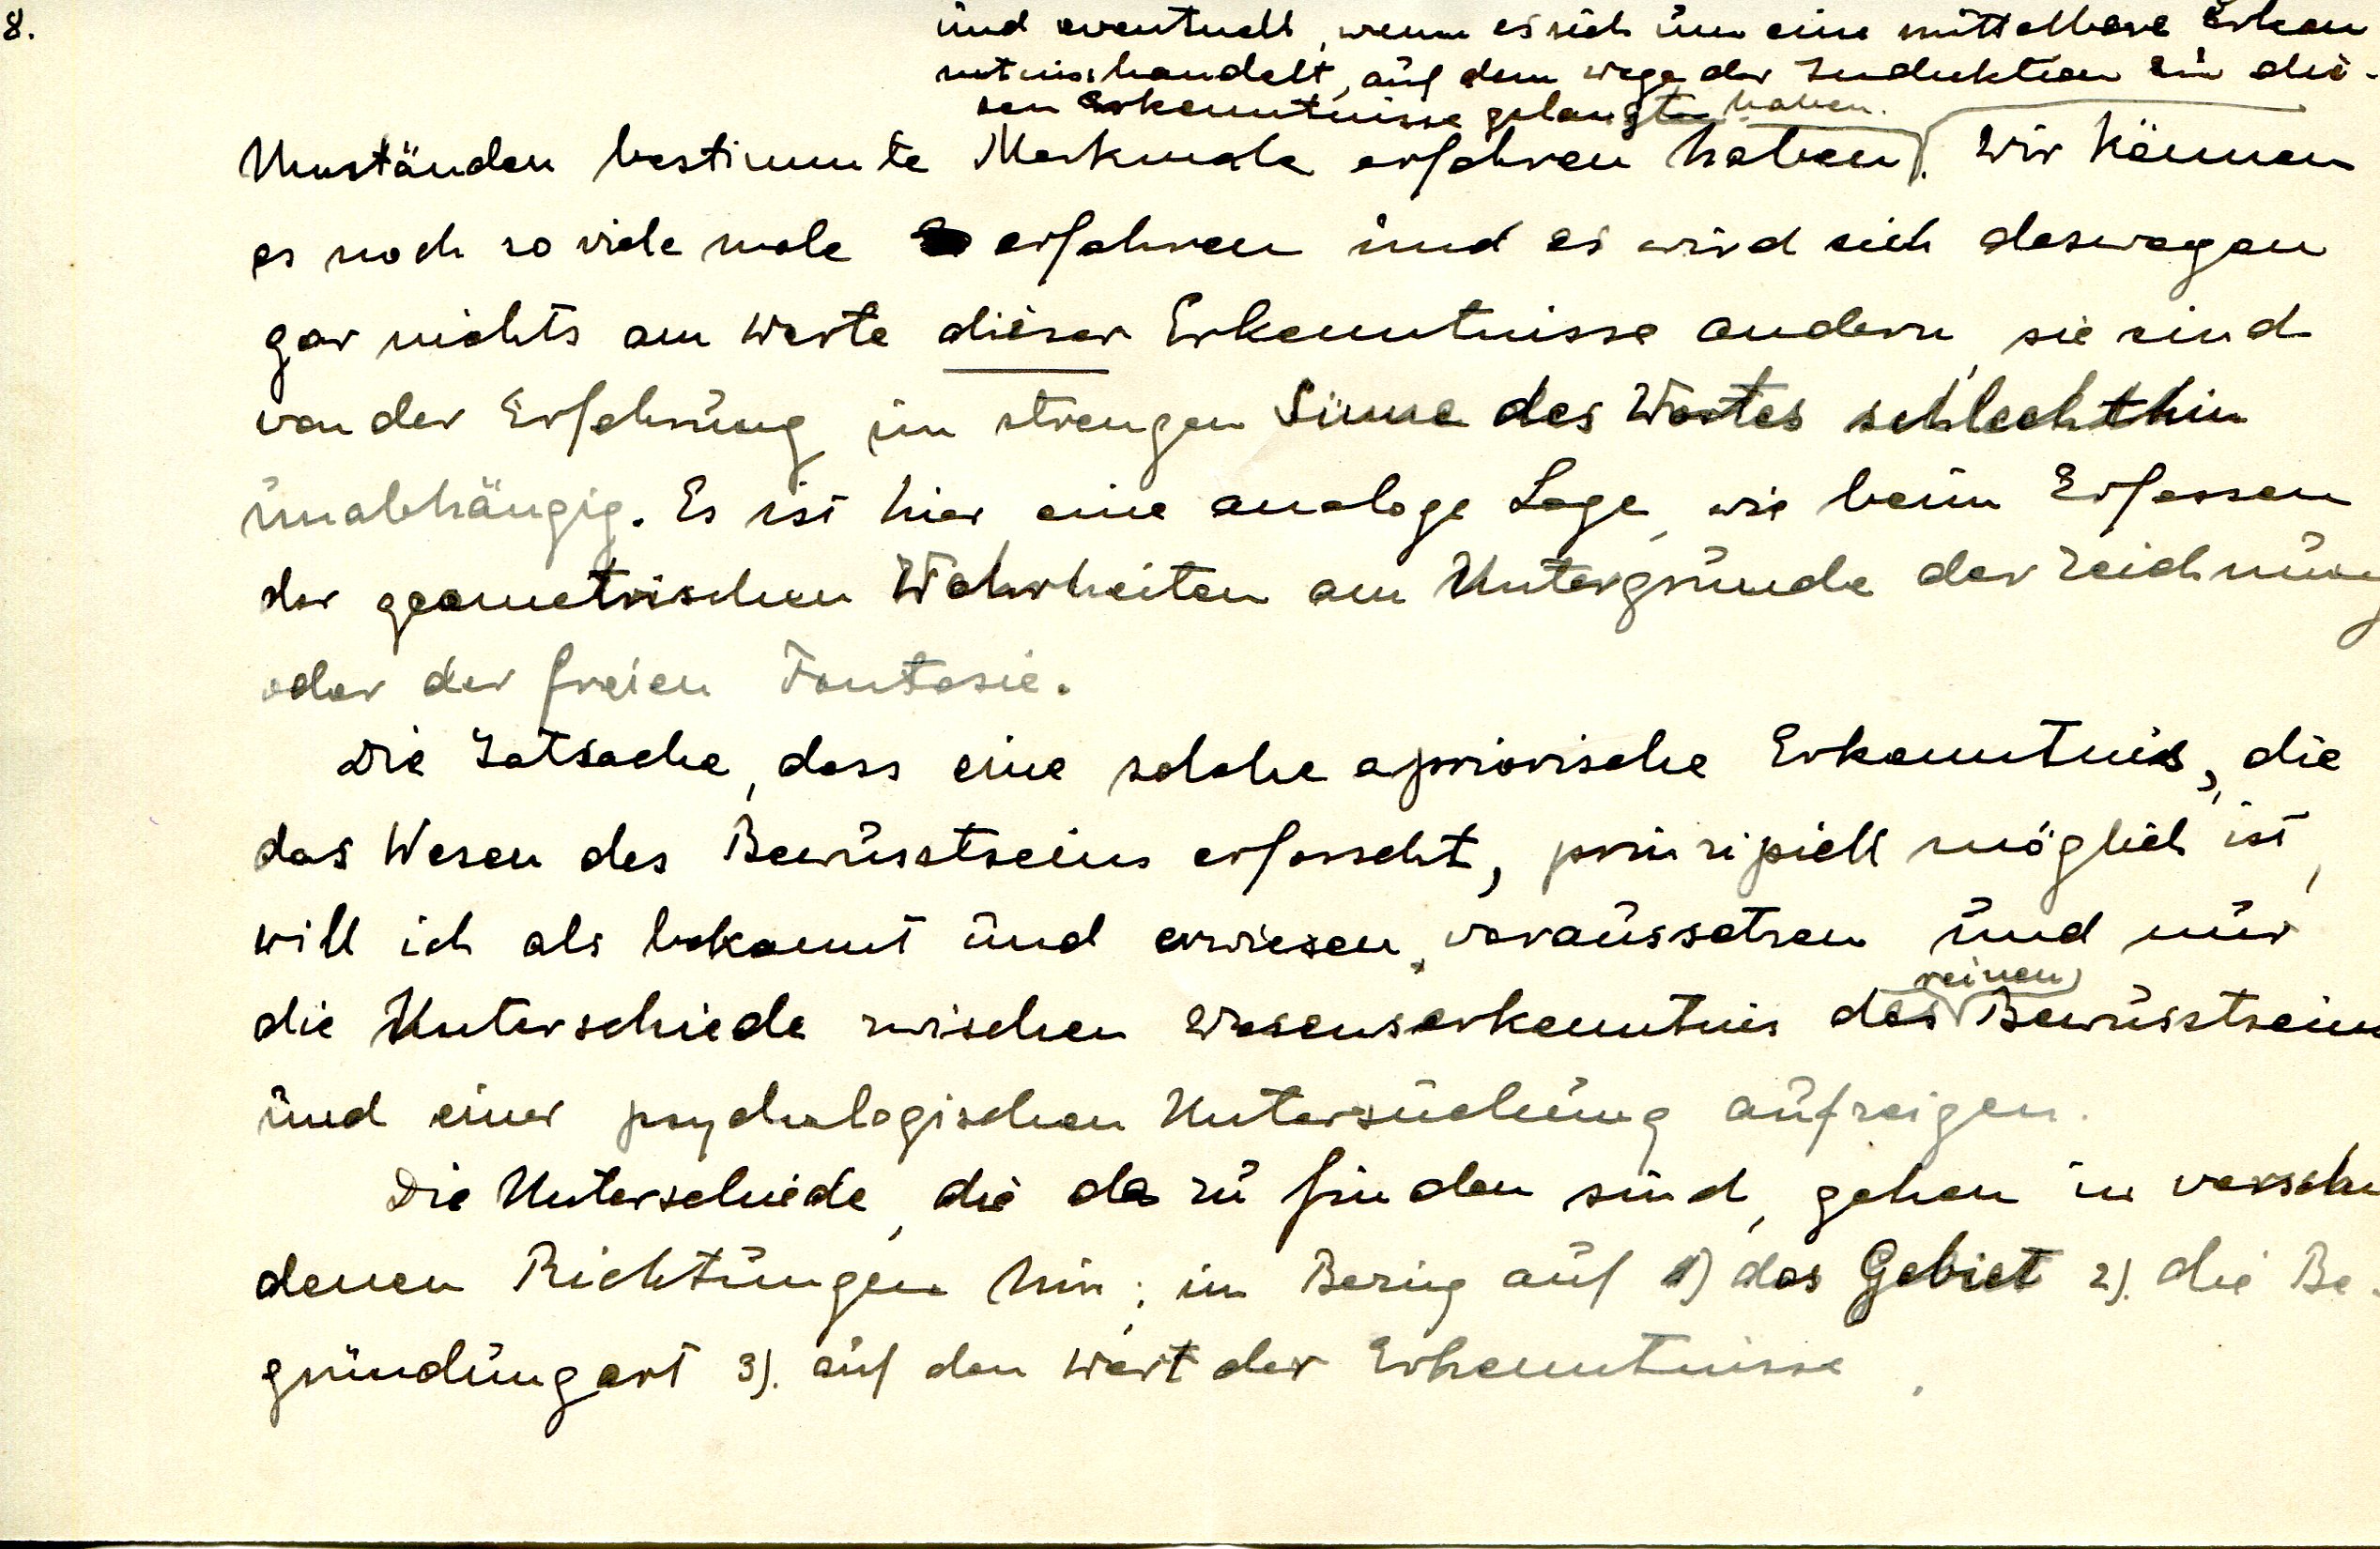 8.
und eventuell, wenn es sich um eine mittelbare Erken
ntnis handelt, auf dem Wege der Induktion zu die-
sen Erkenntnisse gelangt haben.
Umständen bestimmte Merkmale erfahren haben. Wir können
es noch so viele male erfahren und es wird sich deswegen
gar nichts am Werte dieser Erkenntnisse andern, sie sind
von der Erfahrung im strengen Sinne des Wortes schlechthin
unabhängig. Es ist hier eine analoge Lage, wie beim Erfassen
der geometrischen Wahrheiten am Untergrunde der Zeichnung
oder der freien Fantasie.
Die Tatsache, dass eine solche apriorische Erkenntnis, die
das Wesen des Bewusstseins erforscht, prinzipiell möglich ist,
will ich als bekannt und erwiesen voraussetzen und nur
reinen
die Unterschiede zwischen Wesenserkenntnis des Bewusstseins
und einer psychologischen Untersuchung aufzeigen.
Die Unterschiede, die da zu finden sind, gehen in verschie
denen Richtungen hin; in Bezug auf 1) das Gebiet 2). die Be-
gründungart 3). auf den Wert der Erkenntnisse.